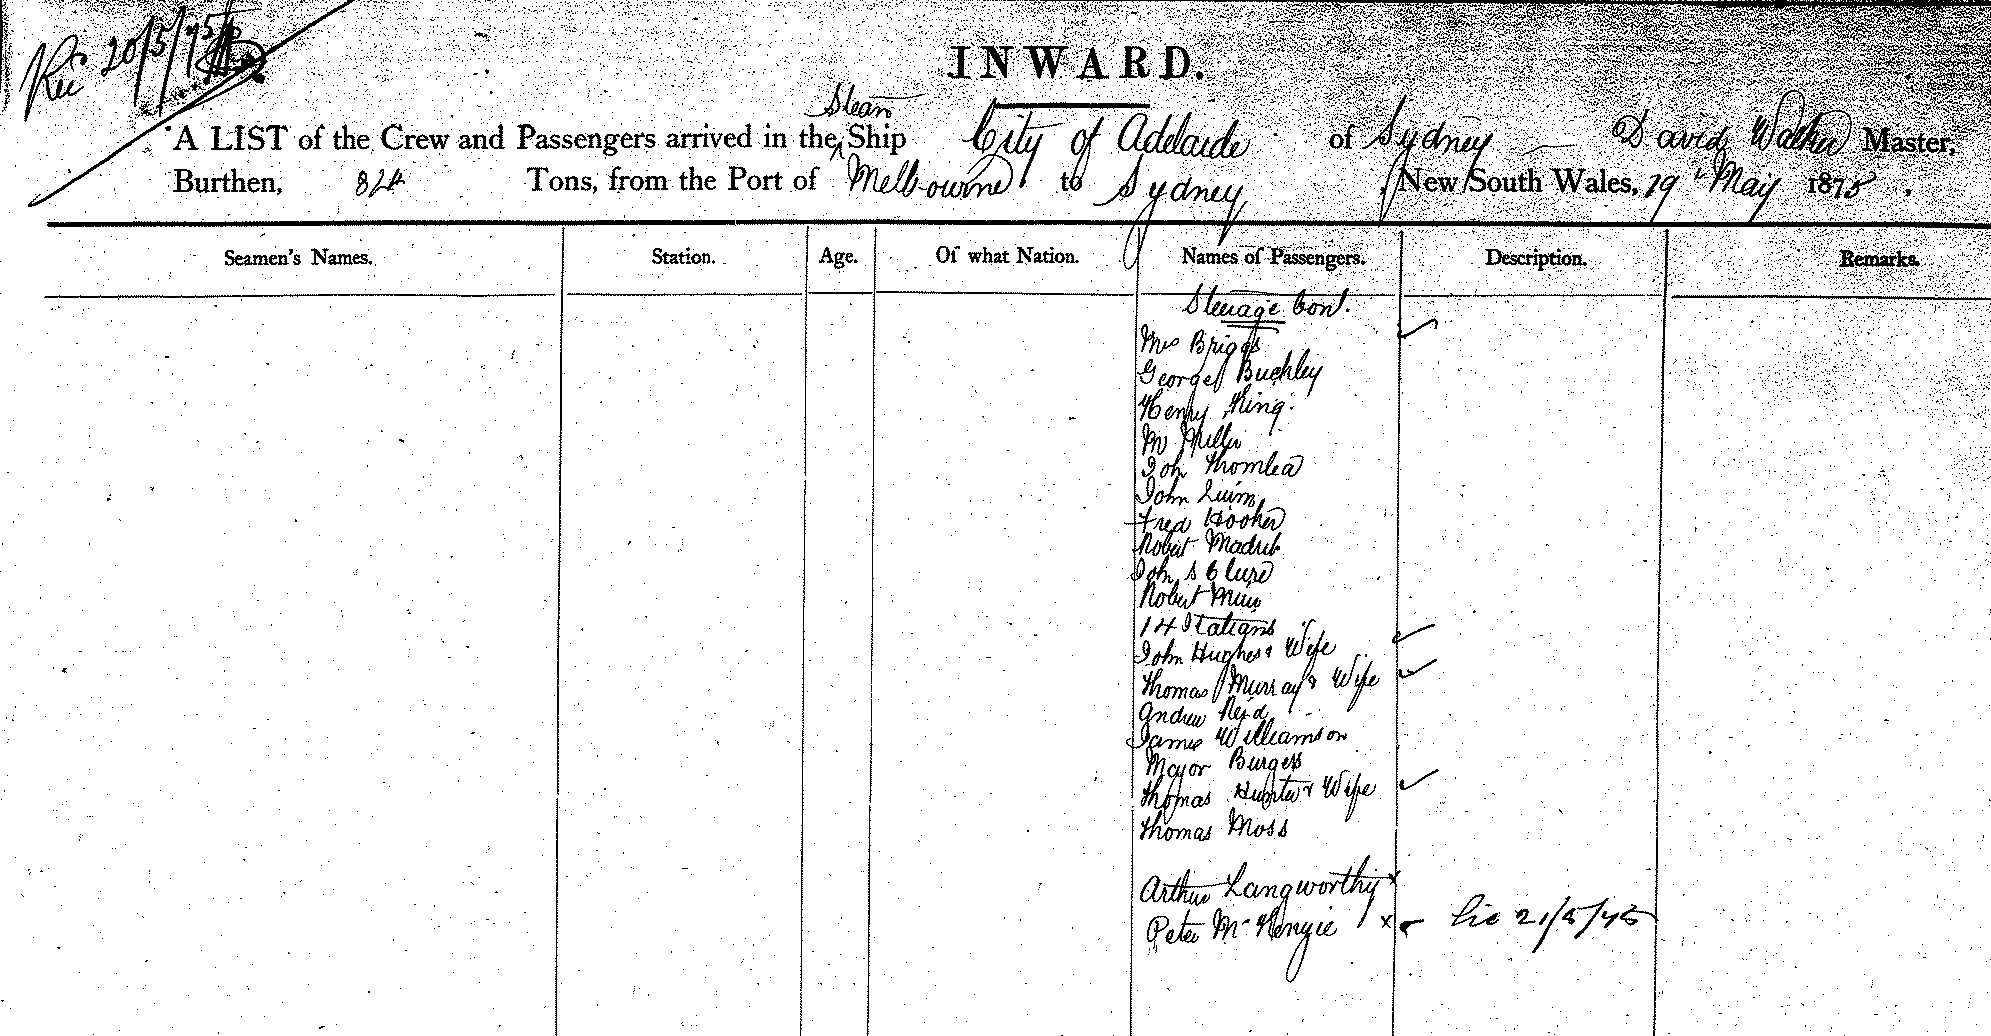 Rec 20/5/75
INWARD.
Steam
A LIST of the Crew and Passengers arrived in the Ship City of Adelaide of Sydney David Walker Master,
Burthen, 824 Tons, from the Port of Melbourne to Sydney, New South Wales, 19 May 1875
Seamen's Names. Station. Age. Of what Nation. Names of Passengers. Description. Remarks.
Steerage Con.
Mrs Briggs
George Buckley
Henry King
M Miller
Joh
John Quinn
Fred Hooker
Robert
John S Clure
Robert Muir
14 Italians
John Hughes & Wife
Thomas Murray & Wife
Andrew Reid
James Williamson
Major Burgess
Thomas Hunter & Wife
Thomas Moss
Arthur Langworthy x
Peter McKenzie x 21/5/75